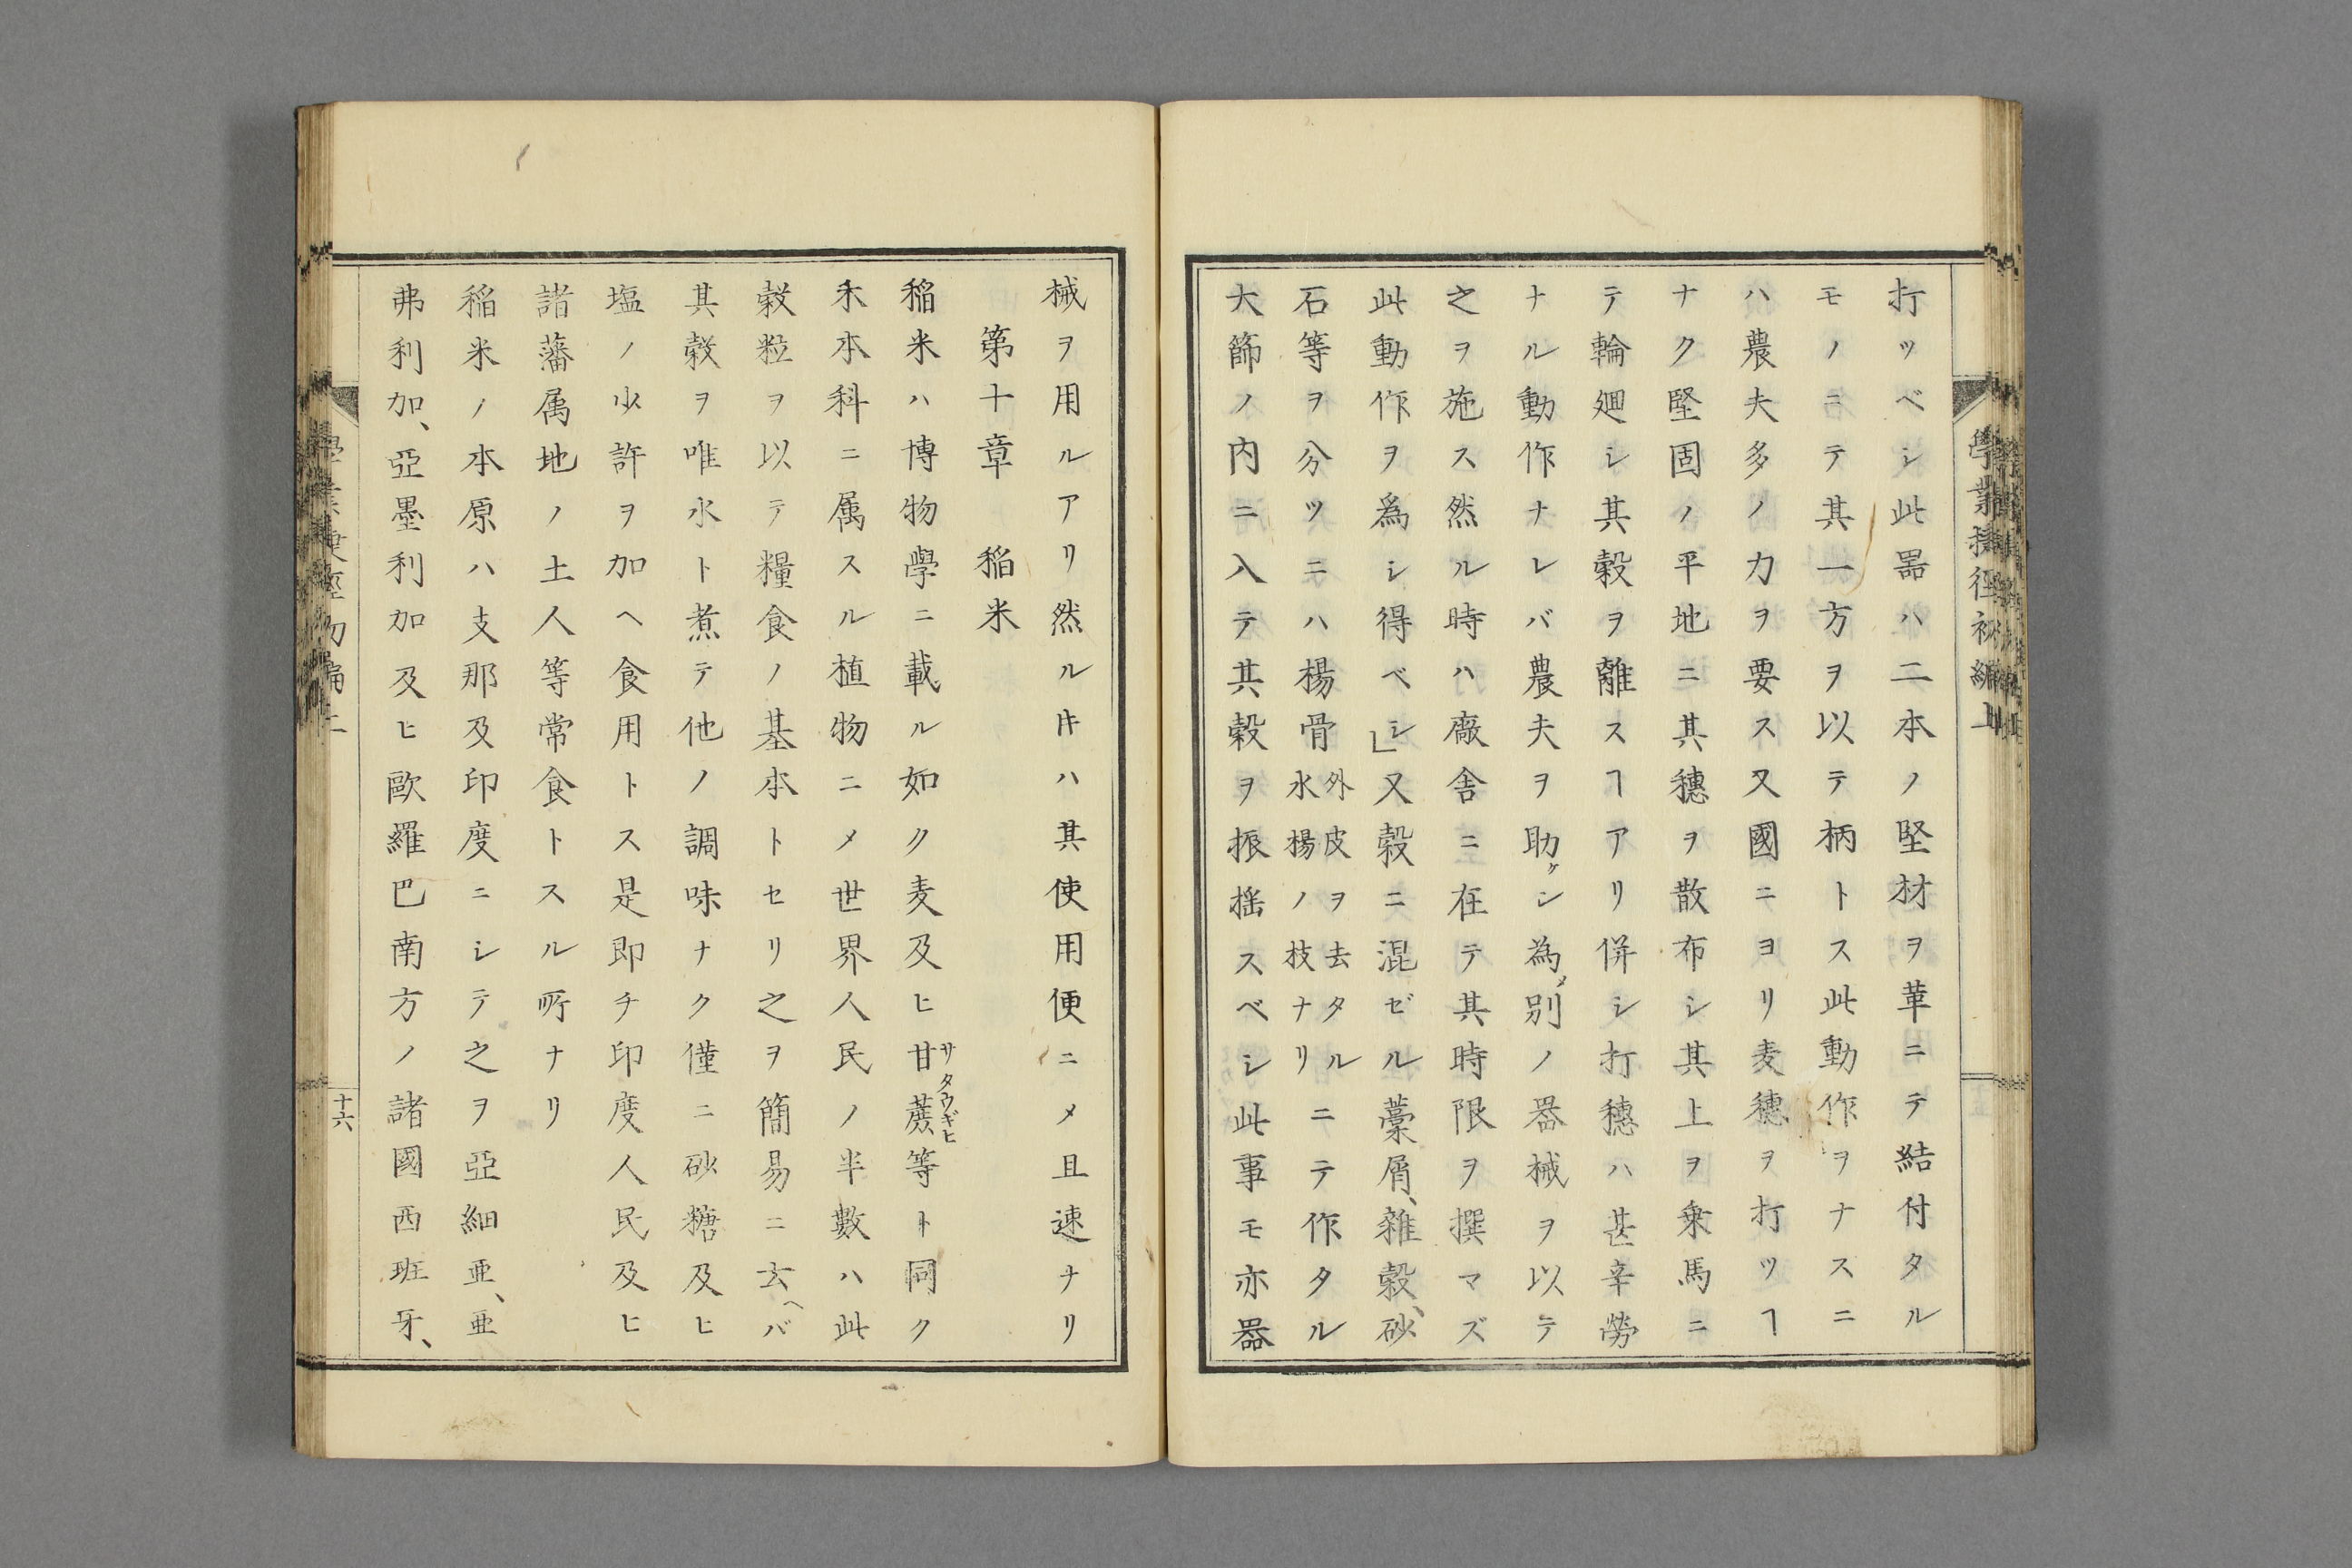 打ツベシ此噐ハ二本ノ堅材ヲ革ニテ結付タル
モノニテ其一方ヲ以テ柄トス此動作ヲナスニ
ハ農夫多ノ力ヲ要ス又國ニヨリ麦穂ヲ打ツヿ
ナク堅固ノ平地ニ其穂ヲ散布シ其上ヲ乗馬ニ
テ輪廻シ其穀ヲ離スヿアリ併シ打穂ハ甚辛勞
ナル動作ナレバ農夫ヲ助ケン為メ別ノ器械ヲ以テ
之ヲ施ス然ル時ハ廠舎ニ在テ其時限ヲ撰マズ
此動作ヲ爲シ得ベシ」又穀ニ混ゼル藁屑、雜穀、砂
石等ヲ分ツニハ楊骨外皮ヲ去タル水楊ノ枝ナリニテ作タル
大篩ノ内ニ入テ其穀ヲ振揺スベシ此事モ亦器
學業捷径初編上
械ヲ用ルアリ然ル𪜈ハ其使用便ニメ且速ナリ
第十章 稲米
稲米ハ博物學ニ載ル如ク麦及ヒ甘蔗サタウギヒ等ト同ク
禾本科ニ属スル植物ニメ世界人民ノ半數ハ此
穀粒ヲ以テ糧食ノ基本トセリ之ヲ簡易ニ玄ヘバ
其穀ヲ唯水ト煮テ他ノ調味ナク僅ニ砂糖及ヒ
塩ノ少許ヲ加ヘ食用トス是即チ印度人民及ヒ
諸藩属地ノ土人等常食トスル所ナリ
稲米ノ本原ハ支那及印度ニシテ之ヲ亞細亜、亜
弗利加、亞墨利加及ヒ歐羅巴南方ノ諸國西班牙、
十六